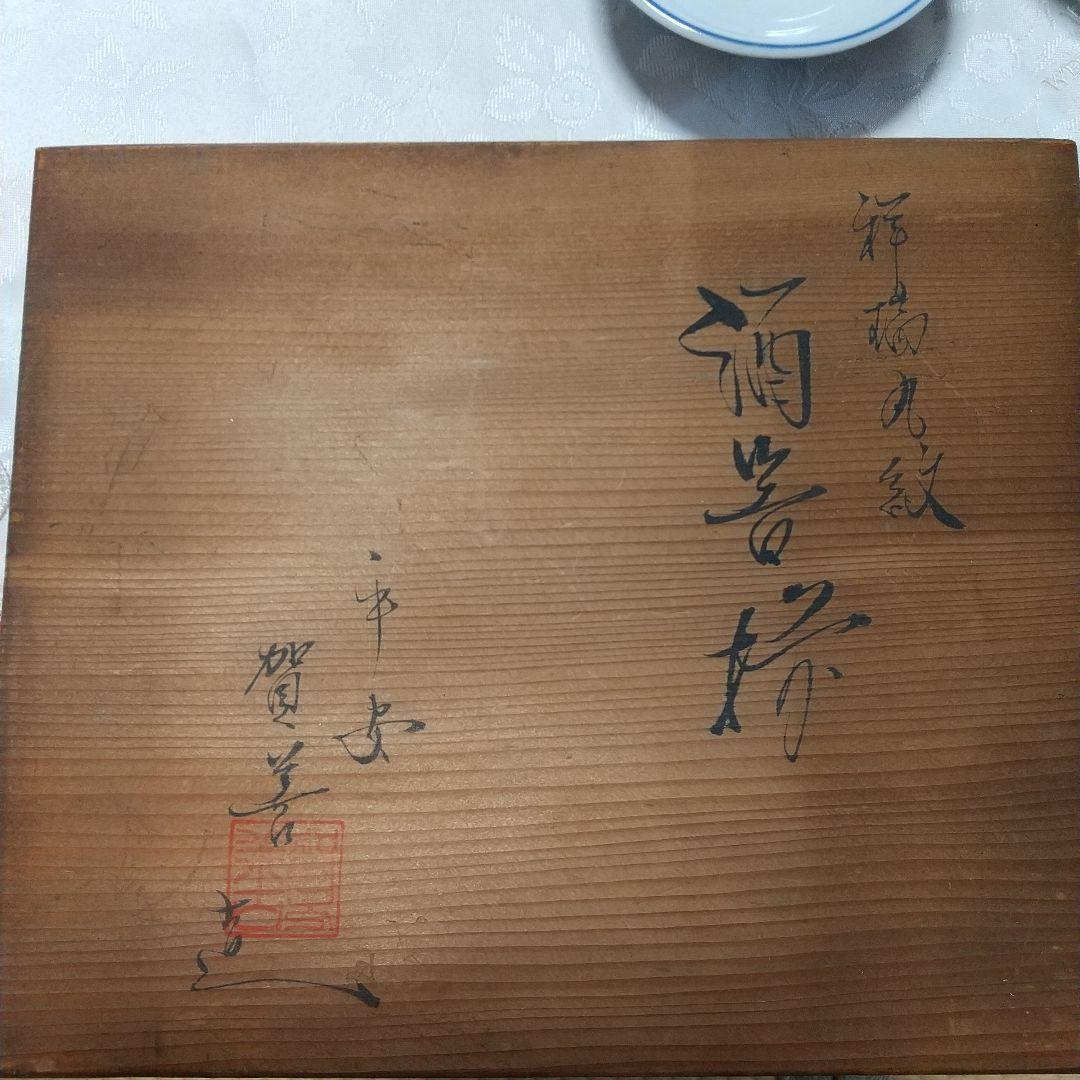 祥瑞丸紋
酒器揃
平安
賀善造